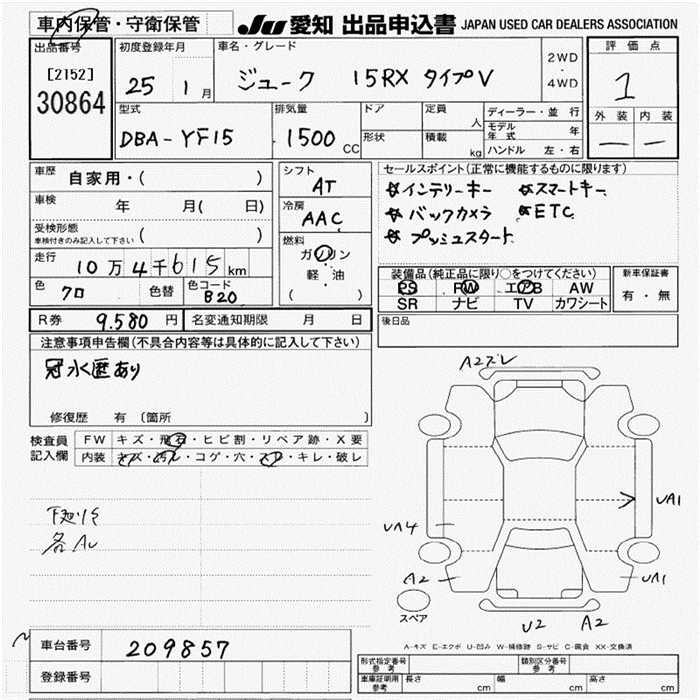 車内保管・守衛保管
JU 愛知 出品申込書 JAPAN USED CAR DEALERS ASSOCIATION
出品番号
[2152]
30864
初度登録年月
25 1月
車名・グレード
ジューク 15RX タイプV
2WD
・
4WD
評価点
1
外装 内装
— —
型式
DBA-YF15
排気量
1500 CC
ドア
形状
定員
人
積載
kg
ディーラー・並行
モデル年式 年
ハンドル 左・右
車歴 自家用・( )
車検 年 月( 日)
受検形態
車検付きのみ記入して下さい ( )
走行 10万4千615km
色 クロ 色替 色コード B20
シフト
AT
冷房
AAC
燃料
ガソリン
・
軽・油
( )
セールスポイント(正常に機能するものに限ります)
インテリーキー スマートキー
バックカメラ ETC
プッシュスタート
装備品(純正品に限り○をつけてください)
PS PW エアB AW
SR ナビ TV カワシート
新車保証書
有・無
R券 9.580円 名変通知期限 月 日
後日品
注意事項申告欄(不具合内容等は具体的に記入して下さい)
冠水歴あり
修復歴 有 〔箇所 〕
検査員
記入欄
FW キズ・飛石・ヒビ割・リペア跡・X要
内装 キズ・汚レ・コゲ・穴・スレ・キレ・破レ
下廻りサ
各AU
A2ズレ
UA1
UA4
A2
UA1
スペア
U2 A2
A-キズ E-エクボ U-凹み W-補修跡 S-サビ C-腐食 XX-交換済
車台番号 209857
登録番号
型式指定番号
参考
類別区分番号
参考
車庫証明用
参考
長さ cm 幅 cm 高さ cm